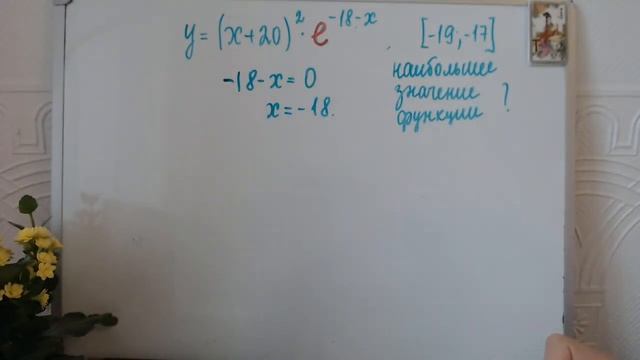 y = (x+20)²·e^(-18-x) [-19;-17]
-18-x=0
x=-18.
наибольшее
значение
функции ?